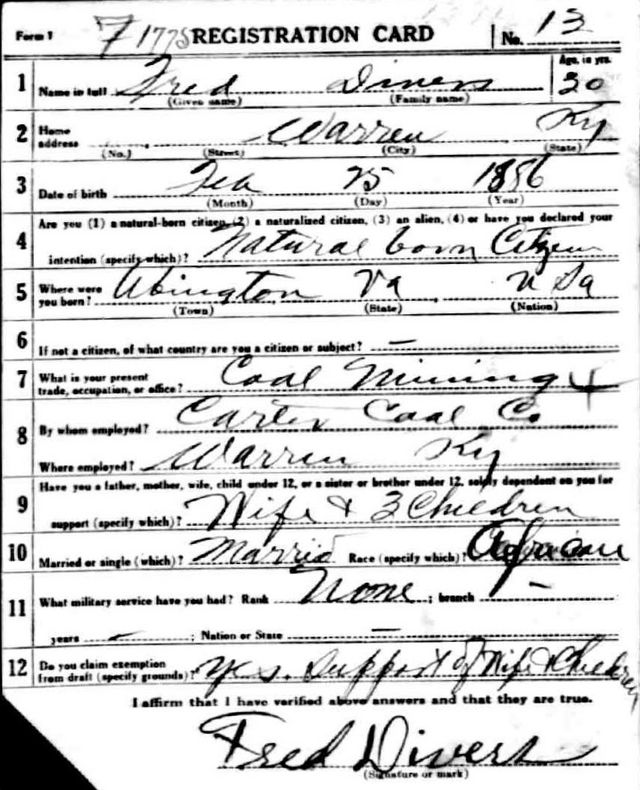 Form 1 7 1778 REGISTRATION CARD No. 13
1 Name in full Fred Divers Age, in yrs. 30
(Given name) (Family name)
2 Home address Warren Ky
(No.) (Street) (City) (State)
3 Date of birth Feb 25 1886
(Month) (Day) (Year)
4 Are you (1) a natural-born citizen, (2) a naturalized citizen, (3) an alien, (4) or have you declared your
intention (specify which)? Natural born Citizen
5 Where were you born? Abington Va U Sa
(Town) (State) (Nation)
6 If not a citizen, of what country are you a citizen or subject? —
7 What is your present trade, occupation, or office? Coal Mining +
8 By whom employed? Carter Coal Co
Where employed? Warren Ky
9 Have you a father, mother, wife, child under 12, or a sister or brother under 12, solely dependent on you for
support (specify which)? Wife & 3 Children
10 Married or single (which)? Married Race (specify which)? African
11 What military service have you had? Rank None ; branch —
years — ; Nation or State —
12 Do you claim exemption from draft (specify grounds)? Yes. Support of Wife & Children
I affirm that I have verified above answers and that they are true.
Fred Divers
(Signature or mark)